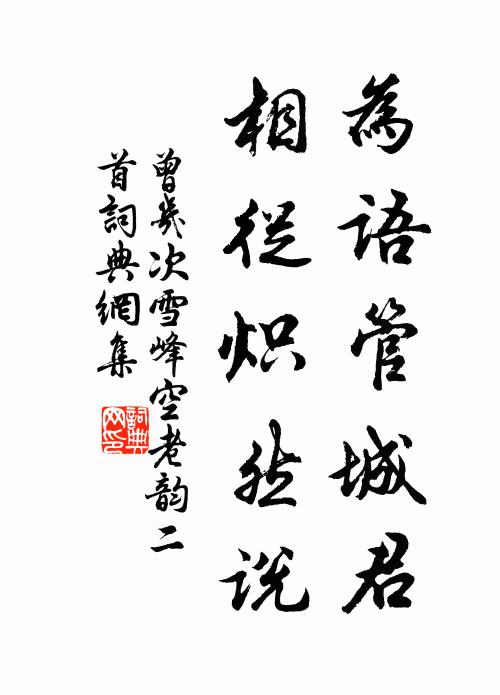 為語管城君
相從炽然説
曾幾次雪峰空老韵二
首詞典網集
詞典网印